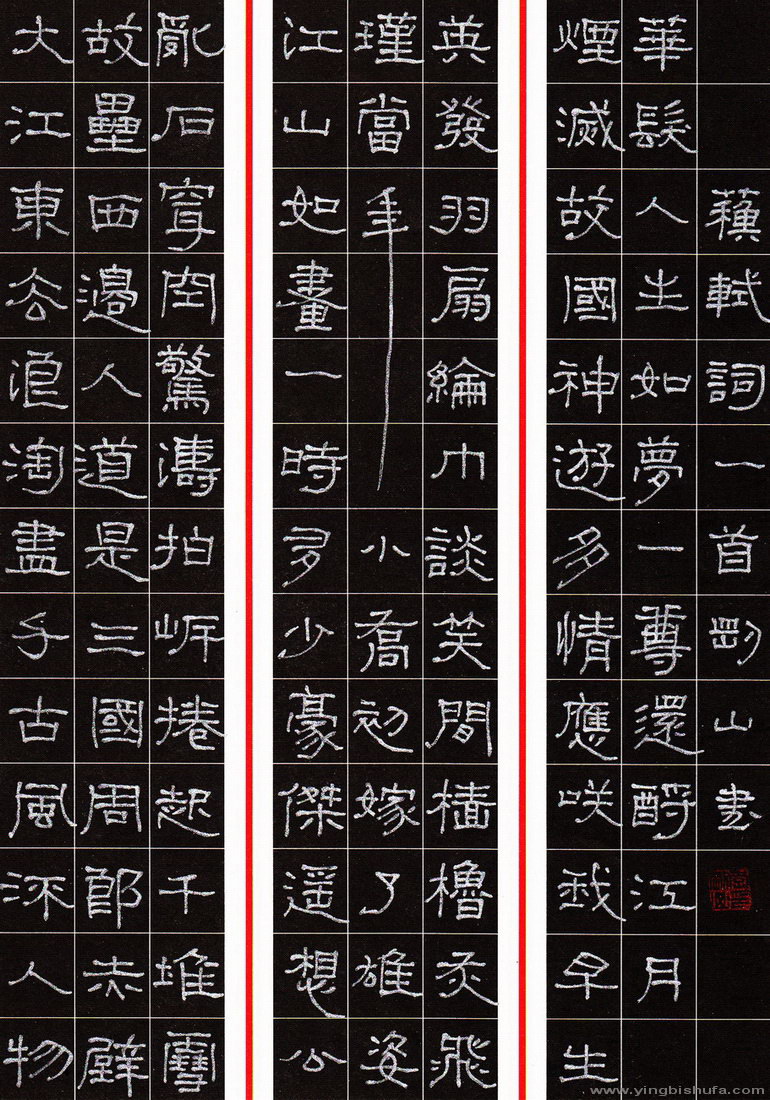 大江東去浪淘盡千古風流人物
故壘西邊人道是三國周郎赤壁
亂石穿空驚濤拍岸捲起千堆雪
江山如畫一時多少豪傑遥想公
瑾當年小喬初嫁了雄姿
英發羽扇綸巾談笑間檣櫓灰飛
煙滅故國神遊多情應咲我早生
華髮人生如夢一尊還酹江月
蘓軾詞一首剛山書
www.yingbishufa.com